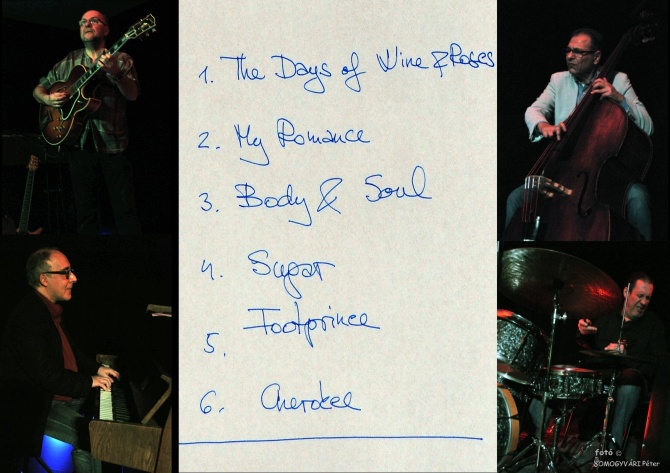 1. The Days of Wine & Roses
2. My Romance
3. Body & Soul
4. Sugar
5. Footprince
6. Cherokee
fotó ©
SOMOGYVÁRI Péter